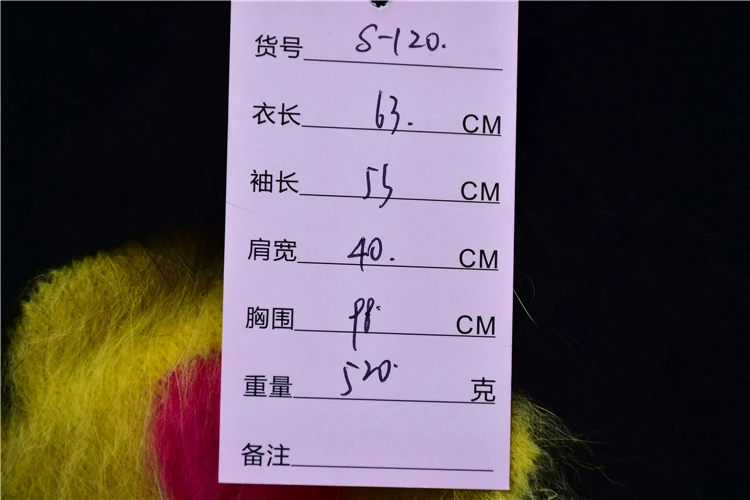 货号 S-120.
衣长 63. CM
袖长 55 CM
肩宽 40. CM
胸围 98. CM
重量 520. 克
备注